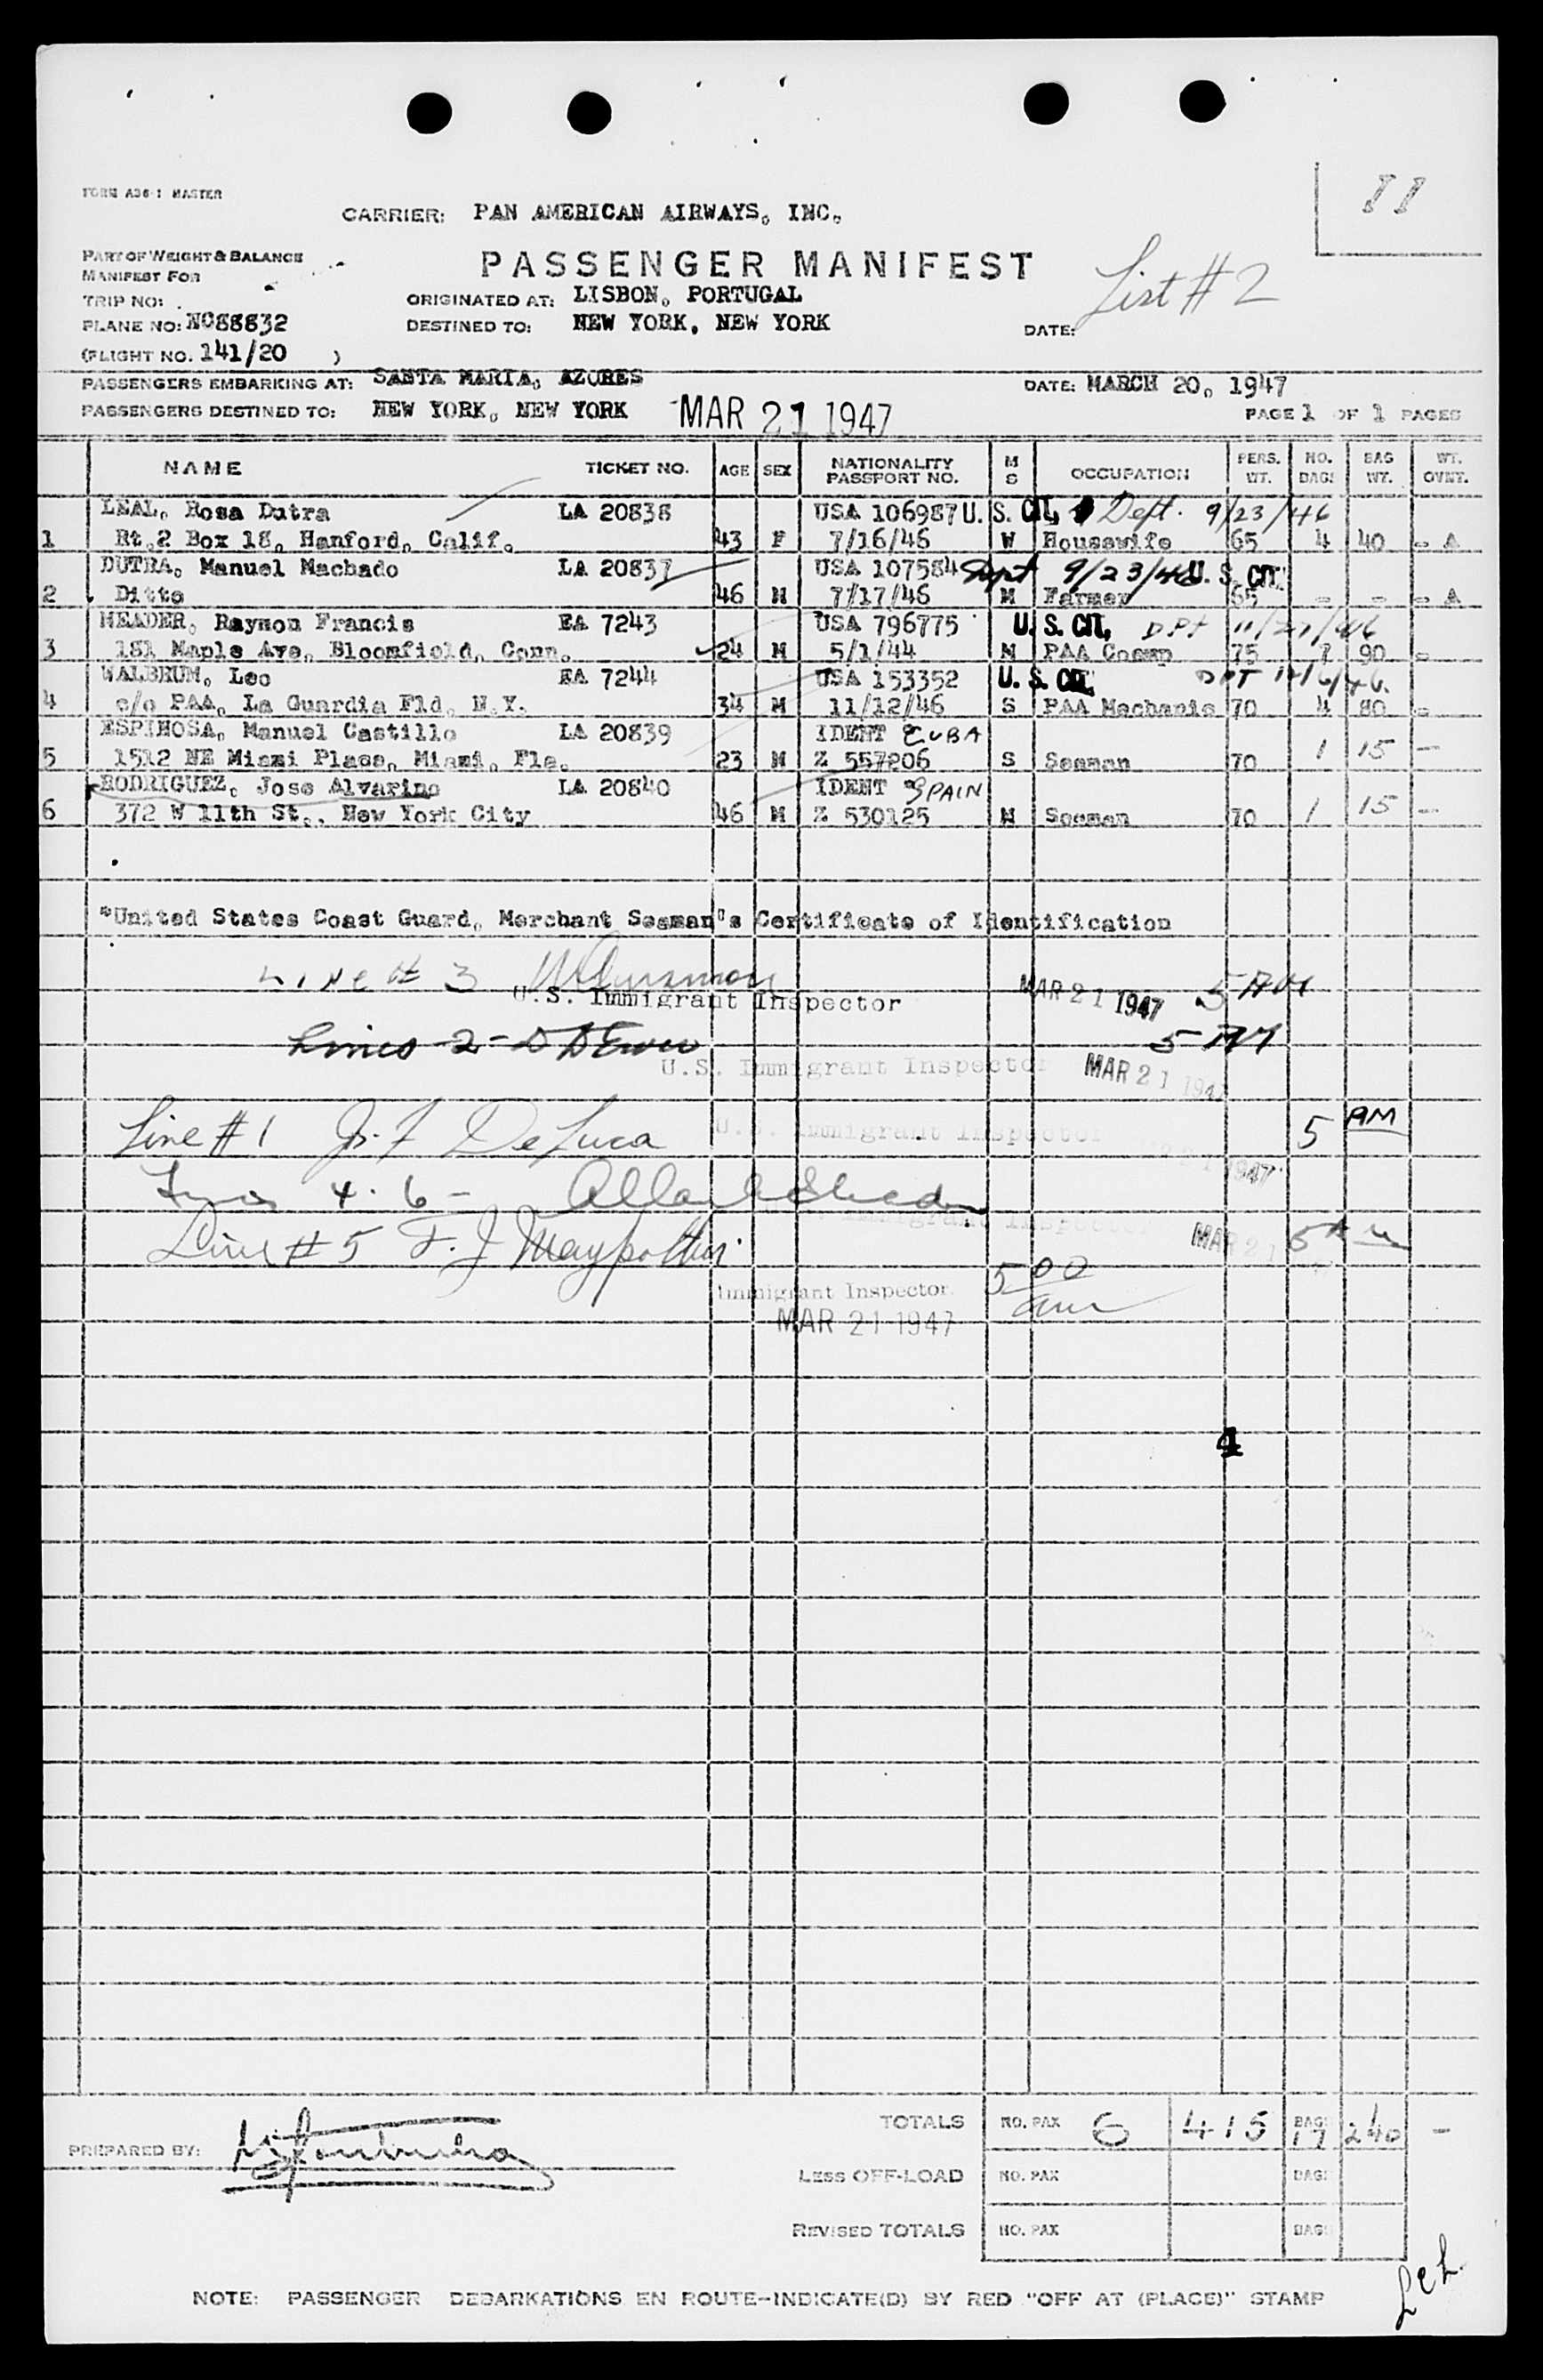 FORM A36-1 MASTER
11
CARRIER: PAN AMERICAN AIRWAYS, INC.
PART OF WEIGHT & BALANCE
MANIFEST FOR
PASSENGER MANIFEST
List # 2
TRIP NO:
ORIGINATED AT: LISBON, PORTUGAL
PLANE NO: NC88832
DESTINED TO: NEW YORK, NEW YORK
DATE:
(FLIGHT NO. 141/20 )
PASSENGERS EMBARKING AT: SANTA MARIA, AZORES
DATE: MARCH 20, 1947
PASSENGERS DESTINED TO: NEW YORK, NEW YORK MAR 21 1947
PAGE 1 OF 1 PAGES
NAME TICKET NO. AGE SEX NATIONALITY PASSPORT NO. M S OCCUPATION PERS. WT. NO. BAGS BAG WT. WT. OVWT.
LEAL, Rosa Dutra LA 20838 USA 106987 U. S. CIT. Dept. 9/23/46
1 Rt.2 Box 18, Hanford, Calif. 43 F 7/16/46 W Housewife 65 4 40 - A
DUTRA, Manuel Machado LA 20837 USA 107584 Dept 9/23/46 U. S. CIT.
2 Ditto 46 M 7/17/46 M Farmer 65 - - - A
MEADER, Raymon Francis EA 7243 USA 796775 U. S. CIT. DPT 11/27/46
3 181 Maple Ave, Bloomfield, Conn. 24 M 5/1/44 M PAA Comm 75 7 90 -
WALBRUM, Leo EA 7244 USA 153352 U. S. CIT. DPT 12/6/46.
4 c/o PAA, La Guardia Fld, N.Y. 34 M 11/12/46 S PAA Mechanic 70 4 80 -
ESPINOSA, Manuel Castillo LA 20839 IDENT CUBA
5 1512 NE Miami Place, Miami, Fla. 23 M Z 557206 S Seaman 70 1 15 -
RODRIGUEZ, Jose Alvarino LA 20840 IDENT SPAIN
6 372 W 11th St., New York City 46 M Z 530125 M Seaman 70 1 15 -
*United States Coast Guard, Merchant Seaman's Certificate of Identification
LINE # 3
U.S. Immigrant Inspector MAR 21 1947 5 AM
Lines 2-
5 AM
U.S. Immigrant Inspector MAR 21 1947
Line # 1 Jr. F DeLuca U.S. Immigrant Inspector 5 AM
MAR 21 1947
4. 6 -
U.S. Immigrant Inspector
Line # 5 F. J MAR 21 5 AM
Immigrant Inspector 5 00 am
MAR 21 1947
4
TOTALS NO. PAX 6 415 BAGS 17 240 -
PREPARED BY:
LESS OFF-LOAD NO. PAX BAGS
REVISED TOTALS NO. PAX BAGS
NOTE: PASSENGER DEBARKATIONS EN ROUTE-INDICATE(D) BY RED "OFF AT (PLACE)" STAMP